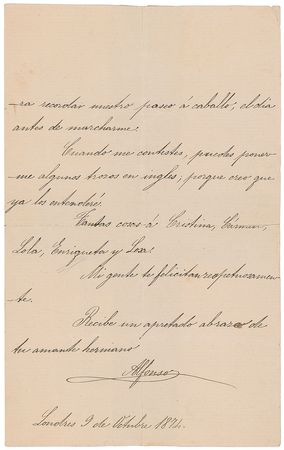 -ra recordar nuestro paseo á caballo; el dia
antes de marcharme.
Cuando me contestes, puedes poner-
me algunos trozos en ingles; porque creo que
ya los entenderé.
Tantas cosas á Cristina, Cármen,
Lola, Enriqueta y
Mi gente te felicitan respetuosamen-
te.
Recibe un apretado abrazo de
tu amante hermano
Alfonso
Londres 9 de Octubre 1874.